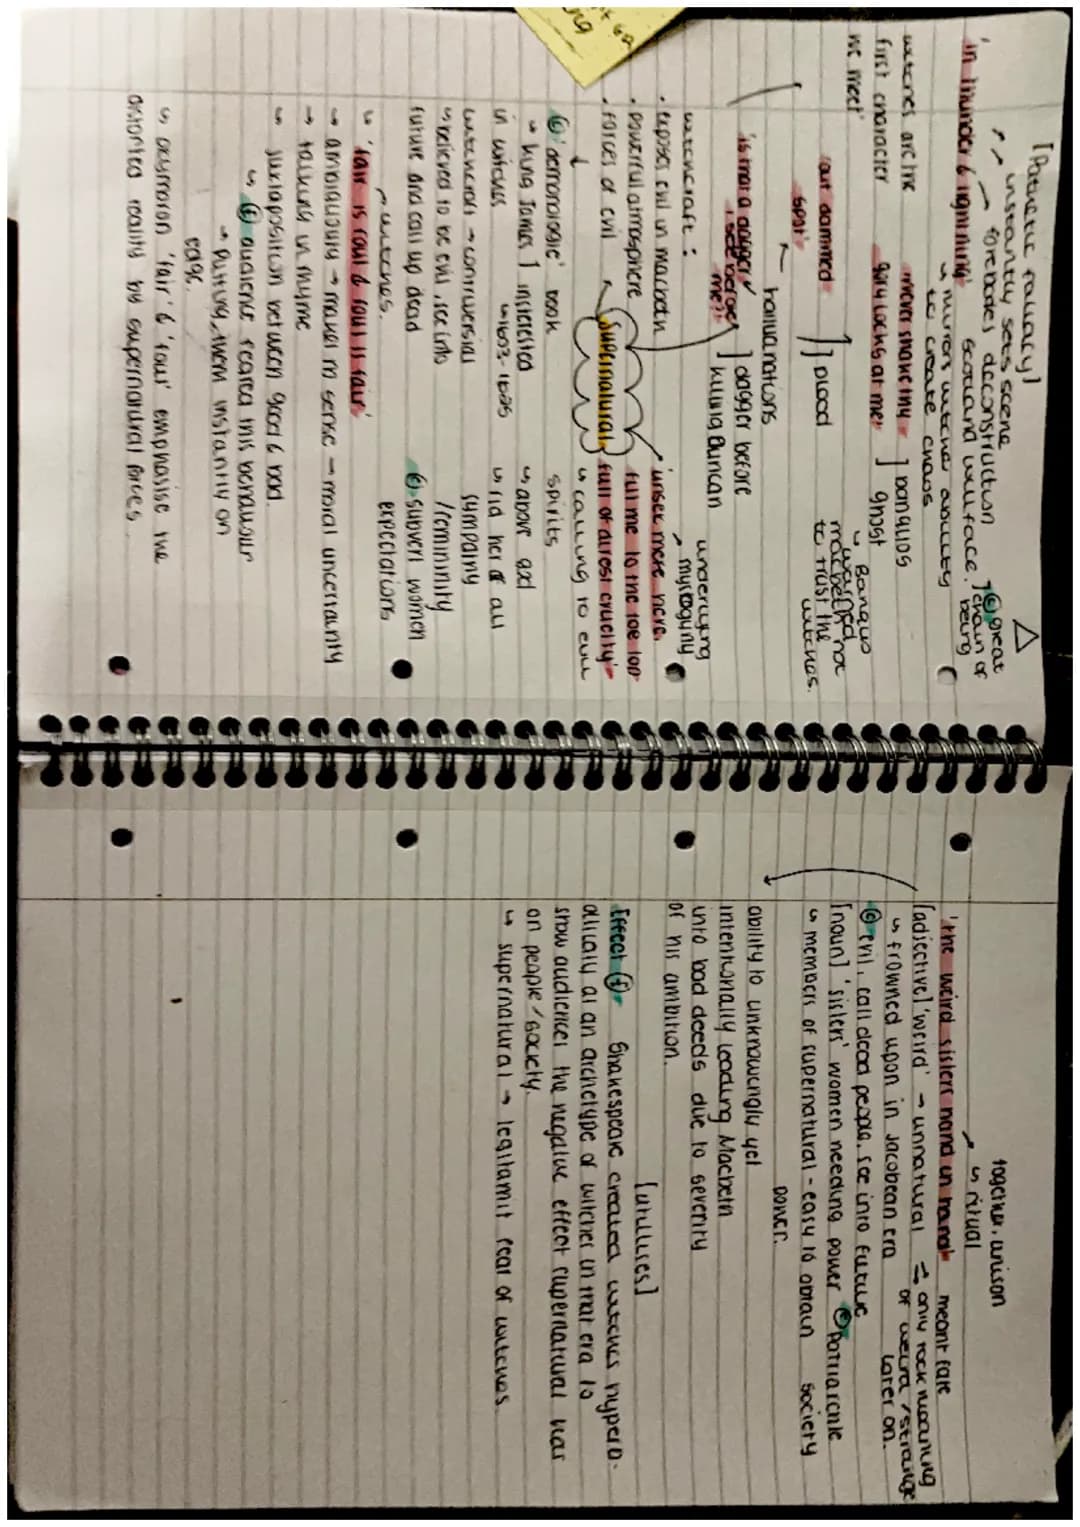 [Patheic fallacy]
↗ instantly sets scene
→ forebodes deconstruction
'in thunder & lightning' scotland will face.
] © great chain of being
↳ mirrors witches ability to create chaos
witches are the first character we meet'
never shake thy gory locks at me ] banquos ghost
↳ Banquo warned macbeth not to trust the witches.
'out damned spot' ] blood
hallucinations
'is that a dagger I see before me?' ] dagger before killing Duncan
underlying mysogyny
witchcraft:
• exposes evil in macbeth
• powerful atmosphere
• forces of evil
supernatural
'unsex me here,
fill me to the toe top
full of direst cruelty'
↳ calling to evil spirits
↳ above god
↳ rid her of all sympathy /femininity
© subvert women expectations
© 'demonologie' book
→ king James I interested in witches
↳ 1603-1625
witchcraft → contruversial
↳ believed to be evil, see into future and call up dead
→ witches.
↳ 'fair is foul & foul is fair'
→ ambiguously → makes no sense → moral uncertainty
→ talking in rhyme
↳ juxtaposition between good & bad.
↳ Ⓔ audience feared this behaviour
→ putting them instantly on edge.
↳ oxymoron 'fair' & 'foul' emphasise the
distorted reality by supernatural forces.
together, unison
↳ ritual
'the weird sisters hand in hand'
meant fate
[adjective] 'weird' → unnatural ⇒ only took meaning of weird / strange later on.
↳ frowned upon in Jacobean era
© evil, call dead people, see into future
[noun] 'sisters' women needing power © Patriarchle society
↳ members of supernatural - easy to obtain power.
ability to unknowingly yet
intentionally leading Macbeth
into bad deeds due to severity
of his ambition.
[utilises]
Effect Ⓔ Shakespeare created witches hyperb-
olically as an archetype of witches in that era to
show audiences the negative effect supernatural has
on people / society.
↳ supernatural → legitamit fear of witches.